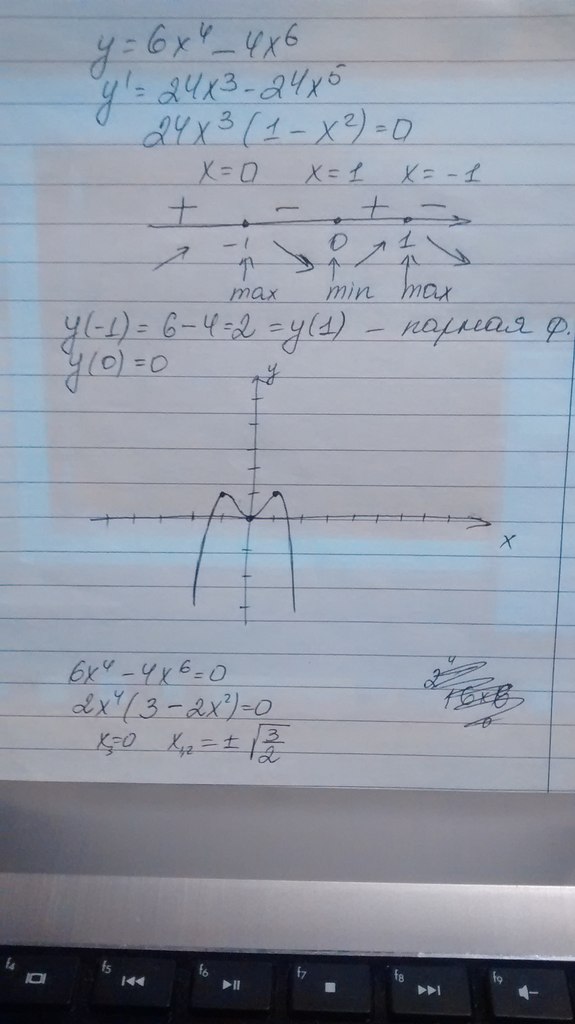 y = 6x⁴ - 4x⁶
y' = 24x³ - 24x⁵
24x³(1 - x²) = 0
x = 0 x = 1 x = -1
+ - + -
-1 0 1
max min max
y(-1) = 6 - 4 = 2 = y(1) - парная ф.
y(0) = 0
y
x
6x⁴ - 4x⁶ = 0
2x⁴(3 - 2x²) = 0
x₃ = 0 x₁,₂ = ± √3/2
f4
f5
f6
f7
f8
f9